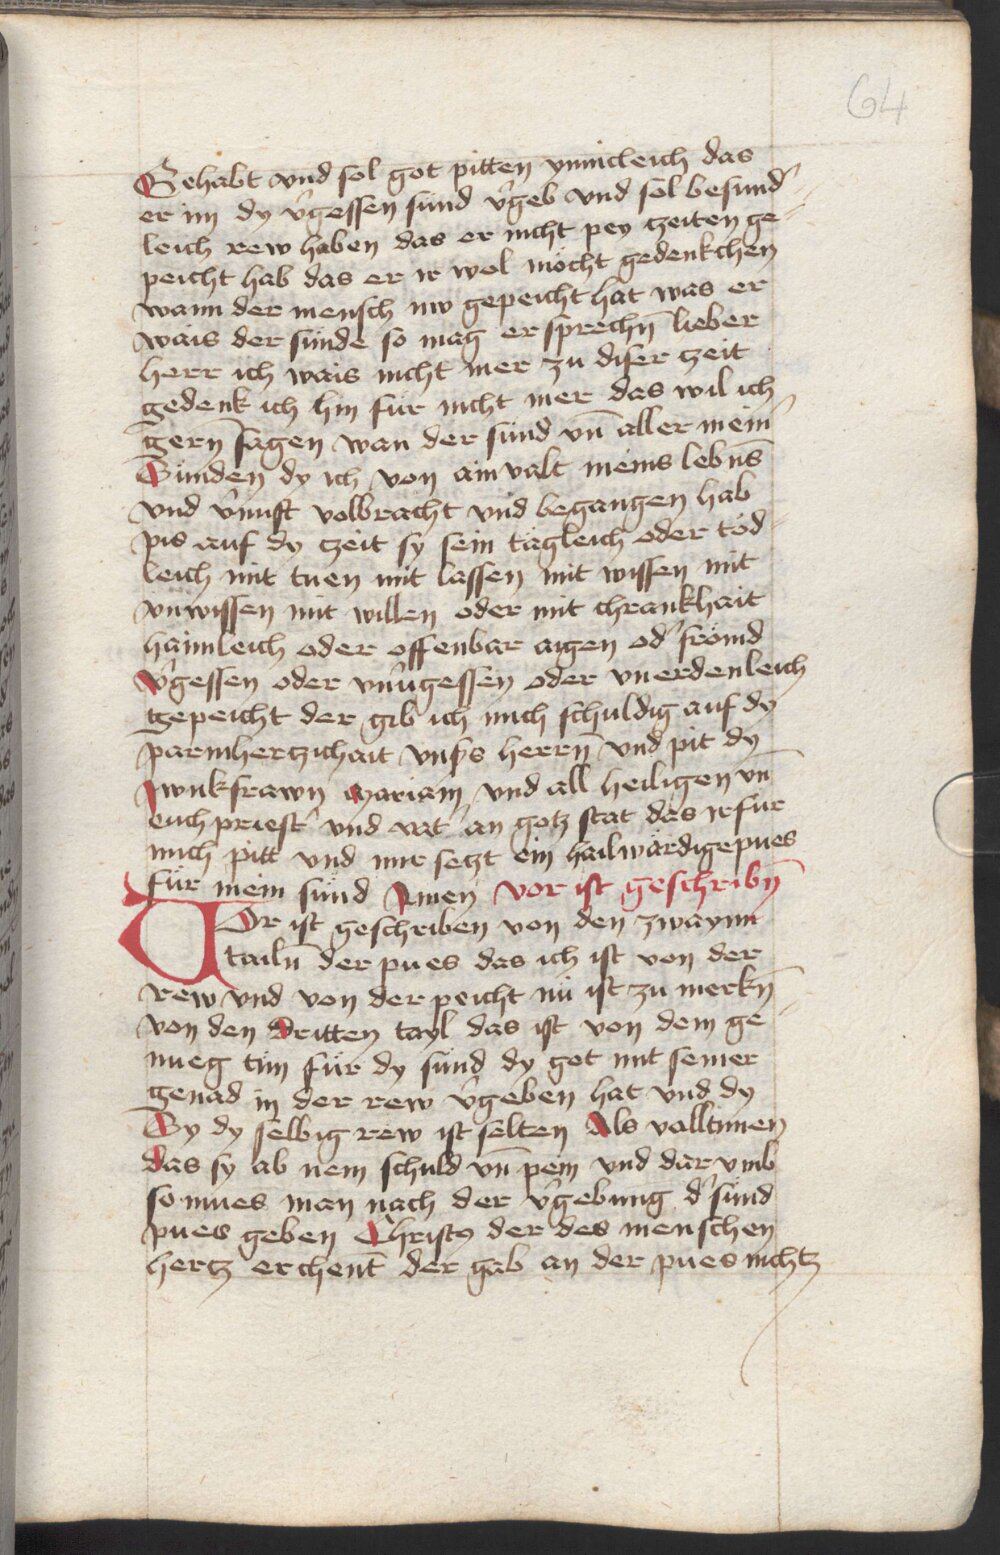 64
Gehabt vnd sol got pitten ynnicleich das
er im dy v͛gessen sünd v͛geb vnd sol besund͛-
leich rew haben das er nicht pey czeiten ge-
peicht hab das er ir wol möcht gedenkchen
wann der mensch nw gepeicht hat was er
wais der sünde so mag er sprechn̄ lieber
herr ich wais nicht mer zu diser czeit
gedenk ich hin für nicht mer das wil ich
gern̄ sagen wan der sünd vn̄ aller meīn
Sünden dy ich von ainvalt meins lebn̄s
vnd v͛nuft volbracht vnd begangen hab
pis auf dy czeit sy sein tägleich oder töd-
leich mit tuen mit lassen mit wissen mit
vnwissen mit willen oder mit chrankhait
haimleich oder offenbar aigen od͛ frömd
v͛gessen oder vnv͛gessen oder vnerdenleich
gepeicht der gib ich mich schuldig auf dy
parmherczichait vns͛s herrn̄ vnd pit dy
Junkfrawn Mariam vnd all heiligen vn̄
euch priest͛ vnd vat͛ an gotz stat das ir für
mich pitt vnd mir seczt ein hailwärdige pues
für mein sünd Amen vor ist geschribn̄
Vor ist geschriben von den zwaynn
tailn̄ der pues das ich ist von der
rew vnd von der peicht nu ist zu merkn̄
von den dritten tayl das ist von dem ge-
nueg tün für dy sünd dy got mit seiner
genad in der rew v͛geben hat vnd dy
Sy dy selbig rew ist selten Als volkumen
das sy ab nem schuld vn̄ pein vnd dar vmb
so mues man nach der v͛gebung d͛ sünd
pues geben Christꝰ der des menschen
hercz erchent̄ der gab an der pues nichtz